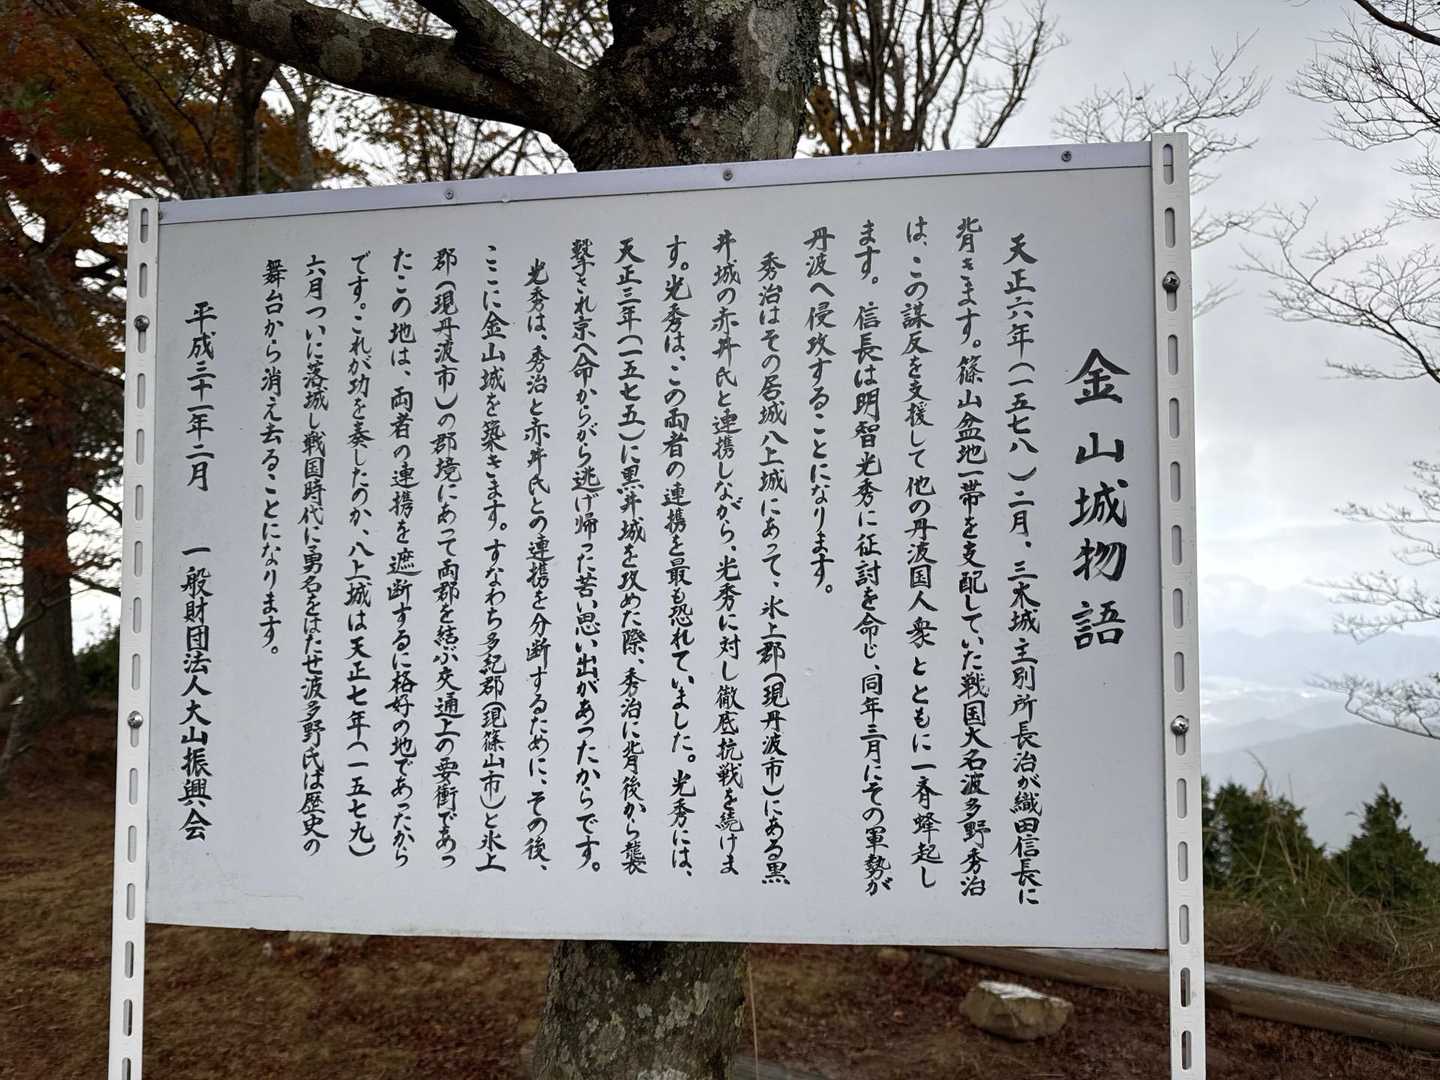 金山城物語
天正六年(一五七八)二月、三木城主別所長治が織田信長に
背きます。篠山盆地一帯を支配していた戦国大名波多野秀治
は、この謀反を支援して他の丹波国人衆とともに一斉蜂起し
ます。信長は明智光秀に征討を命じ、同年三月にその軍勢が
丹波へ侵攻することになります。
秀治はその居城八上城にあって、氷上郡(現丹波市)にある黒
井城の赤井氏と連携しながら、光秀に対し徹底抗戦を続けま
す。光秀は、この両者の連携を最も恐れていました。光秀には、
天正三年(一五七五)に黒井城を攻めた際、秀治に背後から襲
撃され京へ命からがら逃げ帰った苦い思い出があったからです。
光秀は、秀治と赤井氏との連携を分断するために、その後、
ここに金山城を築きます。すなわち多紀郡(現篠山市)と氷上
郡(現丹波市)の郡境にあって両郡を結ぶ交通上の要衝であっ
たこの地は、両者の連携を遮断するに格好の地であったから
です。これが功を奏したのか、八上城は天正七年(一五七九)
六月ついに落城し戦国時代に勇名をはたせ波多野氏は歴史の
舞台から消え去ることになります。
平成三十一年二月 一般財団法人大山振興会